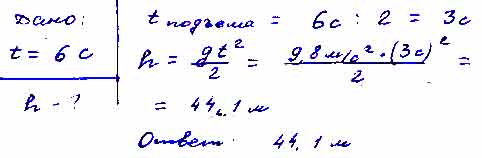 Дано:
t = 6 с
h - ?
t подъема = 6с : 2 = 3с
h = gt²/2 = 9,8 м/с² · (3с)²/2 =
= 44,1 м
Ответ: 44,1 м